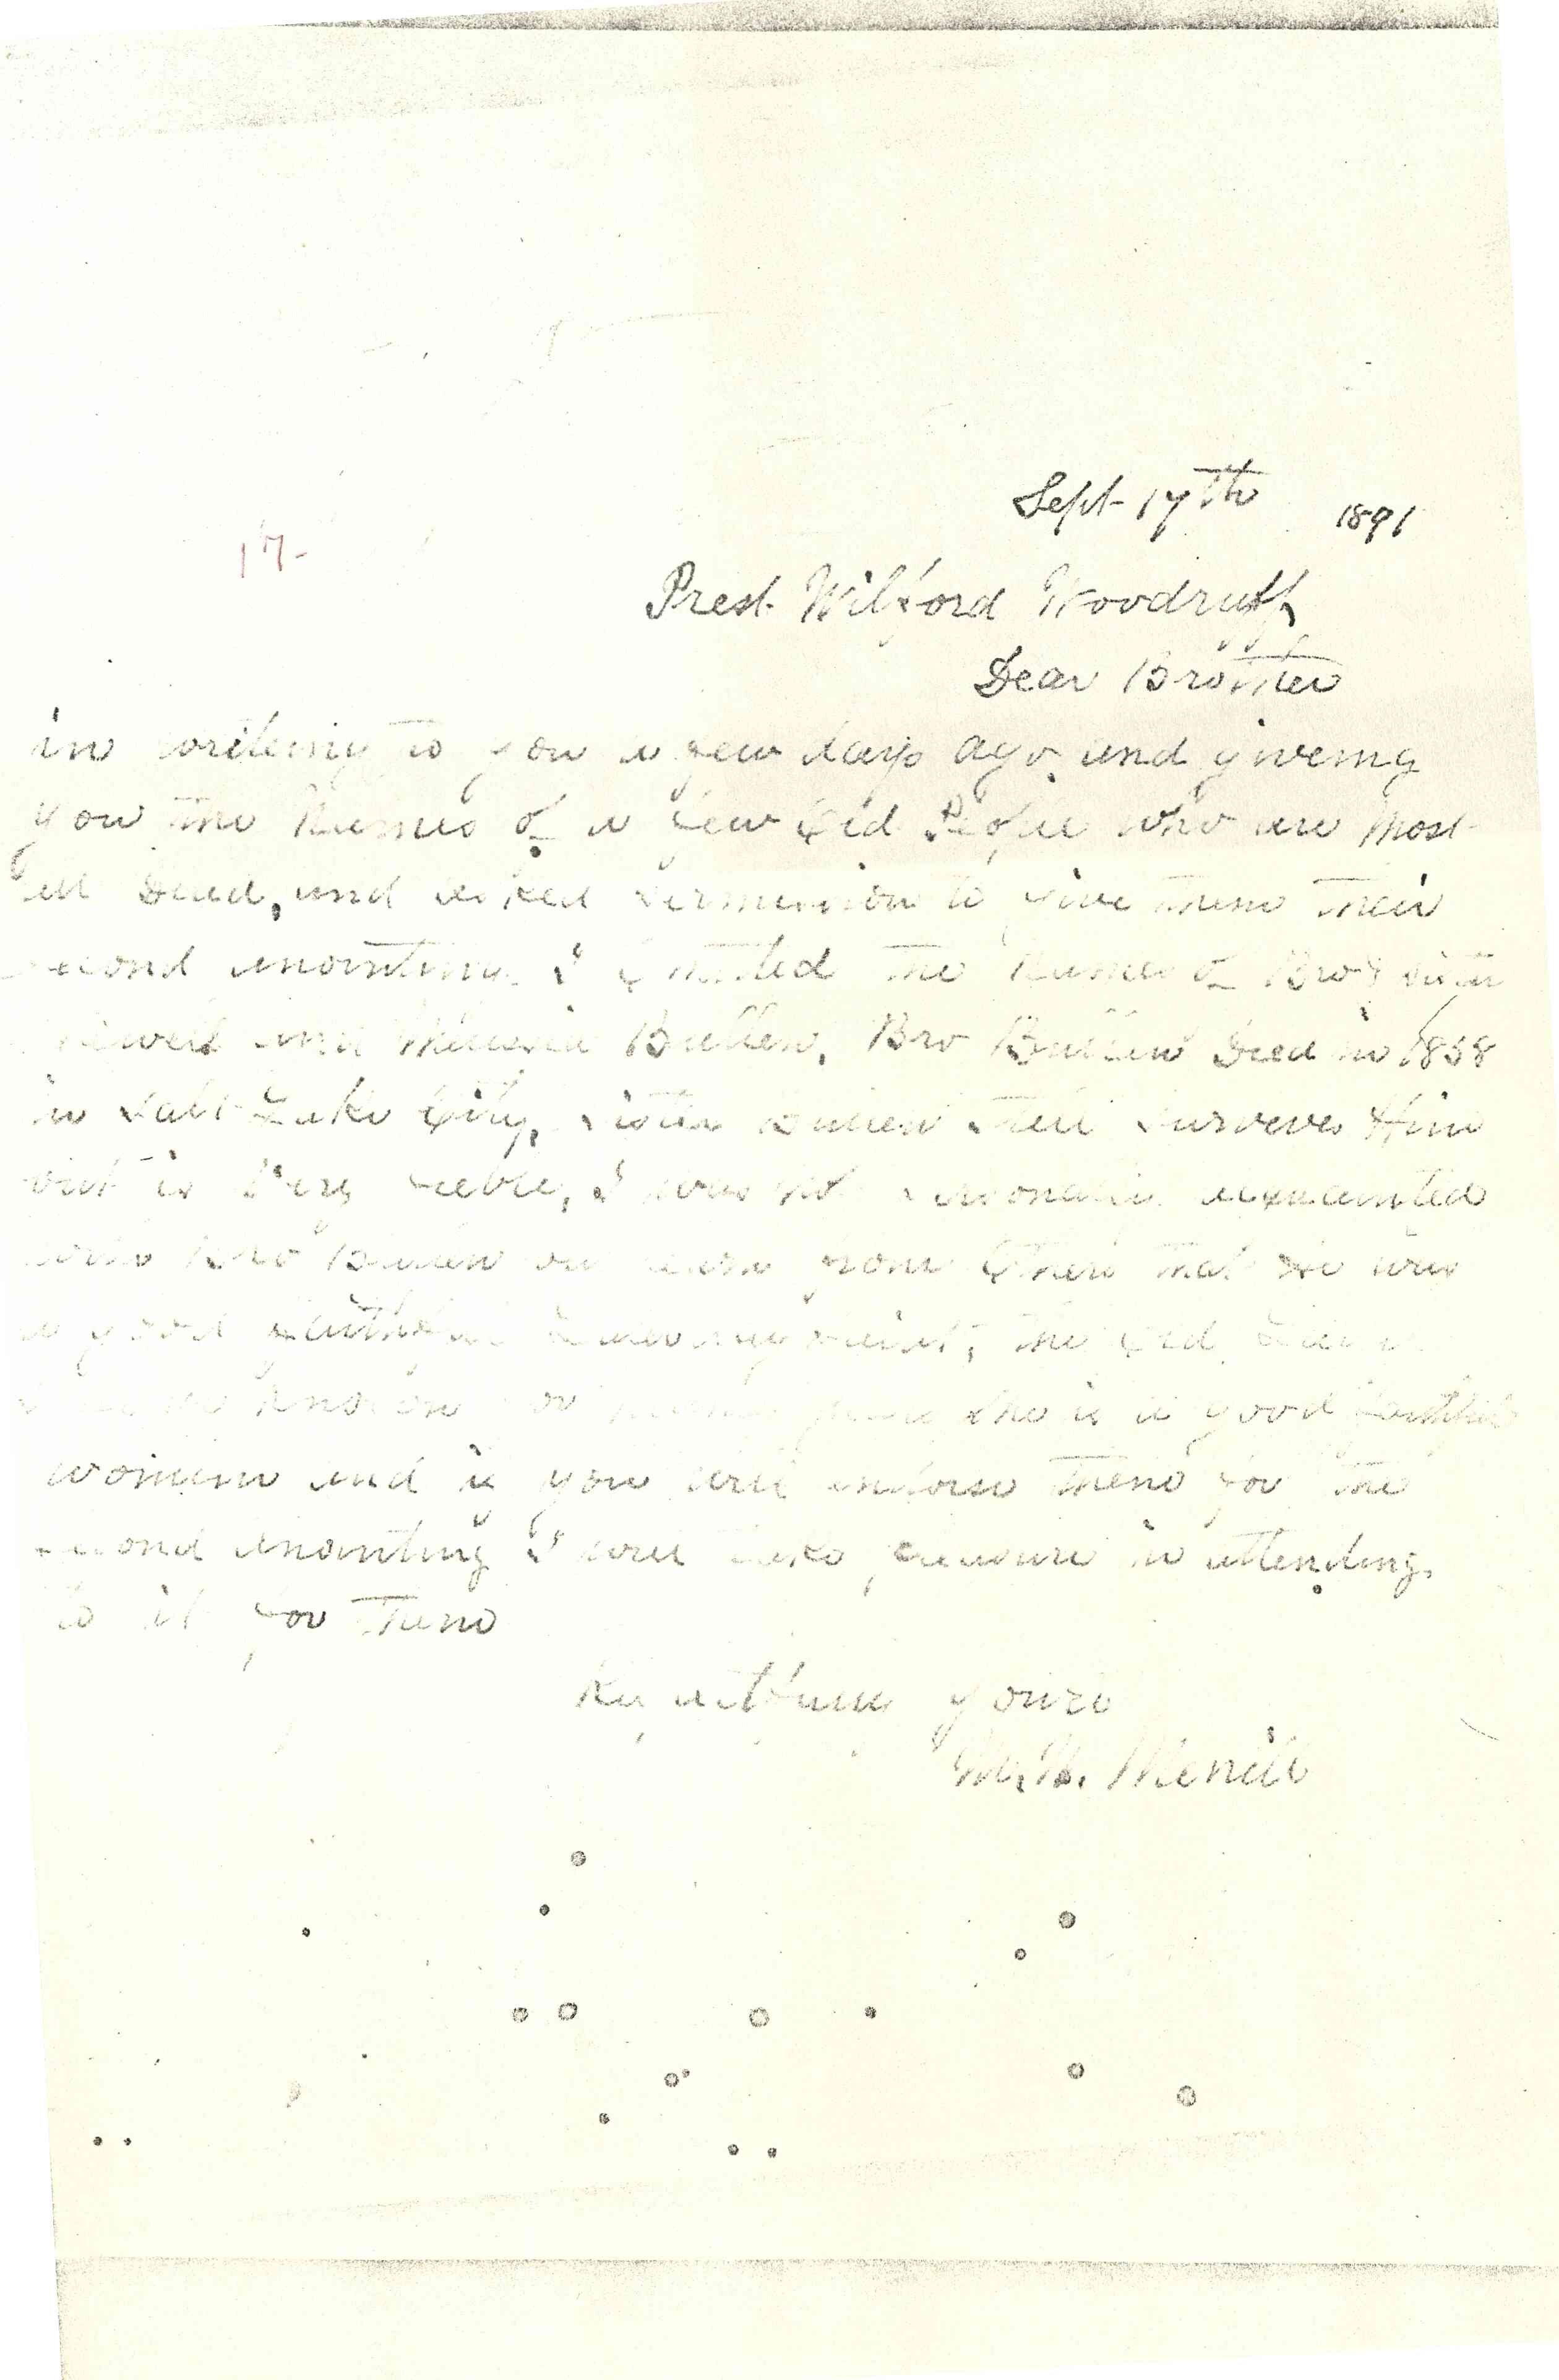 Sept 17th 1891
17-
Prest. Wilford Woodruff
Dear Brother
in writeing to you a few days ago and giveing
you the Names of a few Old People who are Most
all Dead, and asked permission to give them their
second anointing I omitted the Names of Bro & Sister
Newell and Bullen, Bro Bullen Died in 1858
in Salt Lake City, Sister Bullen Still Surveves Him
but is Very feeble, I was not personally acquainted
with Bro Bullen but learn from Others that He was
a good faithful Saint, the Old Lady
I have known for many years she is a good faithful
woman and if you will indorse them for the
second anointing I will take pleasure in attending
to it for them
Respectfully yours
M. W. Merrill